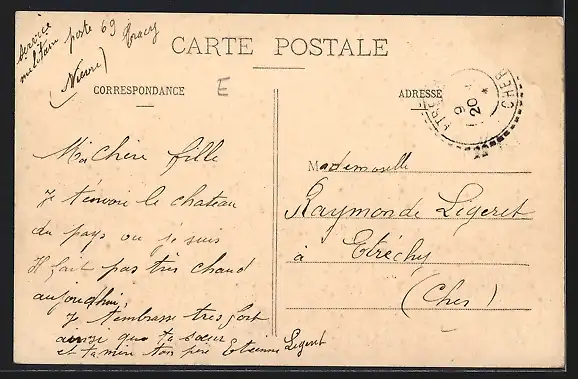 service
militaire poste 69 Tracy
(Nièvre)
CARTE POSTALE
CORRESPONDANCE
E
ADRESSE
CHER
9
20
Ma chère fille
Je t'envoie le chateau
du pays ou je suis
Il fait pas très chaud
aujourd'hui,
Je t'embrasse tres fort
ainsi que ta sœur
et ta mère ton père Etienne Ligeret
Mademoiselle
Raymonde Ligeret
à Etréchy
(Cher)